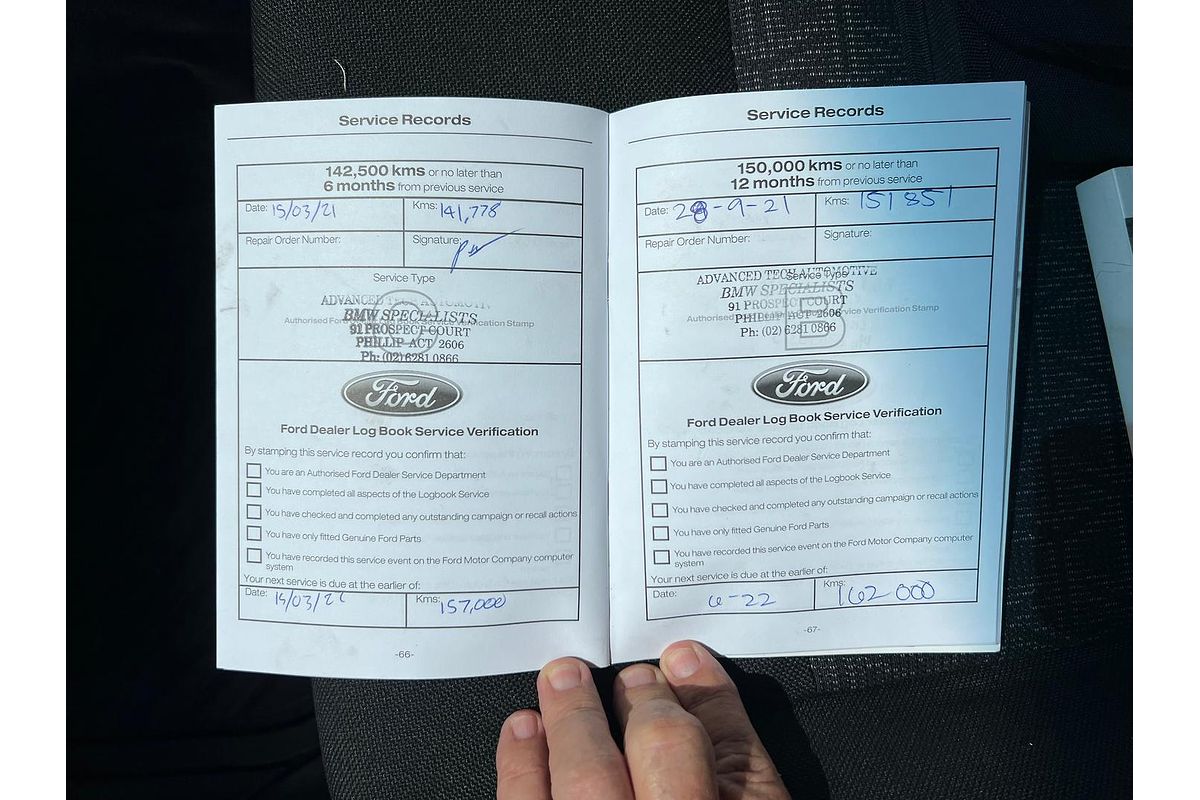 Service Records
142,500 kms or no later than
6 months from previous service
Date: 15/03/21 Kms: 141,778
Repair Order Number: Signature:
Service Type
ADVANCED TECH AUTOMOTIV
BMW SPECIALISTS
Authorised For Service Verification Stamp
91 PROSPECT COURT
PHILLIP ACT 2606
Ph: (02) 6281 0866
Ford
Ford Dealer Log Book Service Verification
By stamping this service record you confirm that:
You are an Authorised Ford Dealer Service Department
You have completed all aspects of the Logbook Service
You have checked and completed any outstanding campaign or recall actions
You have only fitted Genuine Ford Parts
You have recorded this service event on the Ford Motor Company computer
system
Your next service is due at the earlier of:
Date: 15/03/22 Kms: 157,000
-66-
Service Records
150,000 kms or no later than
12 months from previous service
Date: 28-9-21 Kms: 151851
Repair Order Number: Signature:
Service Type
ADVANCED TECH AUTOMOTIVE
BMW SPECIALISTS
91 PROSPECT COURT
Authorised Dealer Service Verification Stamp
PHILLIP ACT 2606
Ph: (02) 6281 0866
B
Ford
Ford Dealer Log Book Service Verification
By stamping this service record you confirm that:
You are an Authorised Ford Dealer Service Department
You have completed all aspects of the Logbook Service
You have checked and completed any outstanding campaign or recall actions
You have only fitted Genuine Ford Parts
You have recorded this service event on the Ford Motor Company computer
system
Your next service is due at the earlier of:
Date: 6-22 Kms: 162000
-67-